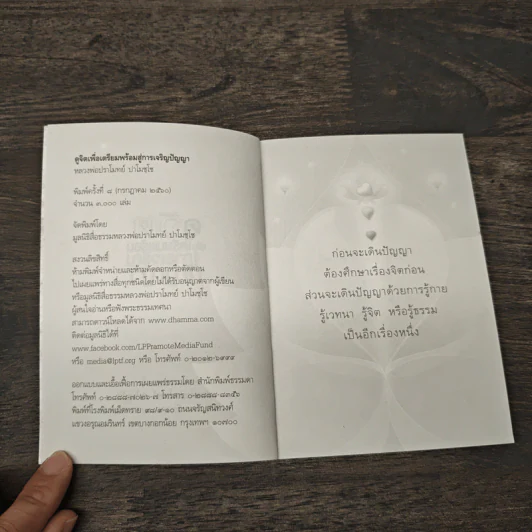 ดูจิตเพื่อเตรียมพร้อมสู่การเจริญปัญญา
หลวงพ่อปราโมทย์ ปาโมชฺโช
พิมพ์ครั้งที่ ๘ (กรกฎาคม ๒๕๖๐)
จำนวน ๓,๐๐๐ เล่ม
จัดพิมพ์โดย
มูลนิธิสื่อธรรมหลวงพ่อปราโมทย์ ปาโมชฺโช
สงวนลิขสิทธิ์
ห้ามพิมพ์จำหน่ายและห้ามคัดลอกหรือตัดตอน
ไปเผยแพร่ทางสื่อทุกชนิดโดยไม่ได้รับอนุญาตจากผู้เขียน
หรือมูลนิธิสื่อธรรมหลวงพ่อปราโมทย์ ปาโมชฺโช
ผู้สนใจอ่านหรือฟังพระธรรมเทศนา
สามารถดาวน์โหลดได้จาก www.dhamma.com
ติดต่อมูลนิธิได้ที่
www.facebook.com/LPPramoteMediaFund
หรือ media@lptf.org หรือ โทรศัพท์ ๐-๒๐๑๒-๖๙๙๙
ออกแบบและเอื้อเฟื้อการเผยแพร่ธรรมโดย สำนักพิมพ์ธรรมดา
โทรศัพท์ ๐-๒๘๘๘-๗๐๒๖-๗ โทรสาร ๐-๒๘๘๘-๘๓๕๖
พิมพ์ที่โรงพิมพ์เม็ดทราย ๙๘/๙-๑๐ ถนนจรัญสนิทวงศ์
แขวงอรุณอมรินทร์ เขตบางกอกน้อย กรุงเทพฯ ๑๐๗๐๐
ก่อนจะเดินปัญญา
ต้องศึกษาเรื่องจิตก่อน
ส่วนจะเดินปัญญาด้วยการรู้กาย
รู้เวทนา รู้จิต หรือรู้ธรรม
เป็นอีกเรื่องหนึ่ง